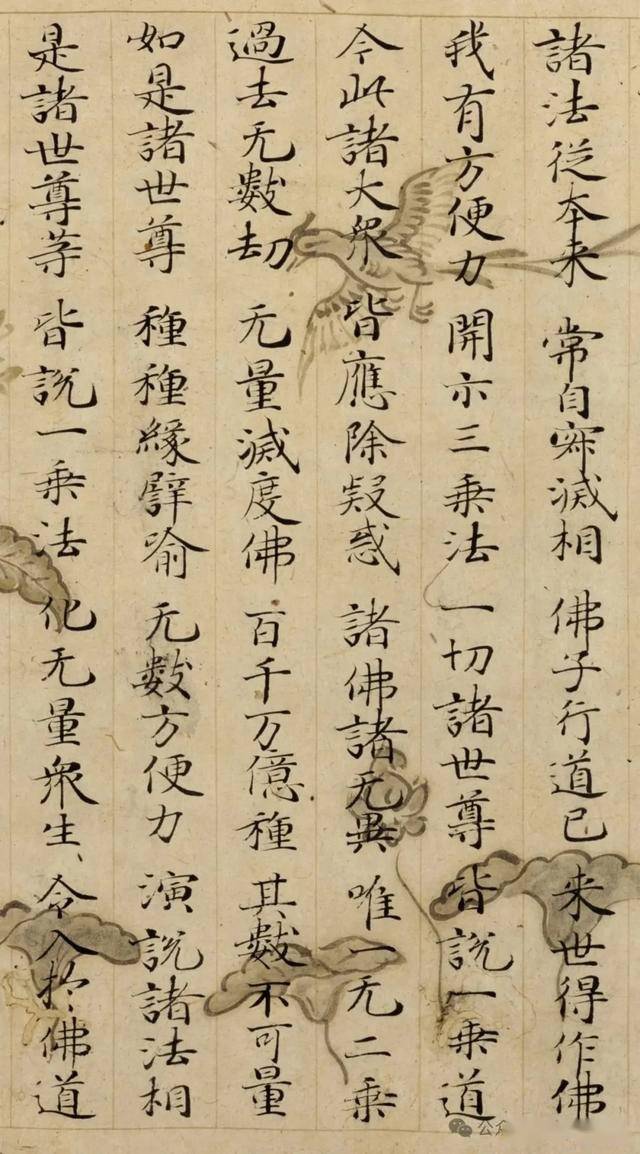 諸法從本来 常自寂滅相 佛子行道已 来世得作佛
我有方便力 開示三乗法 一切諸世尊 皆説一乗道
今此諸大衆 皆應除疑惑 諸佛語无異 唯一无二乗
過去无數劫 无量滅度佛 百千万億種 其數不可量
如是諸世尊 種種緣譬喻 无數方便力 演説諸法相
是諸世尊等 皆説一乗法 化无量衆生 令入於佛道